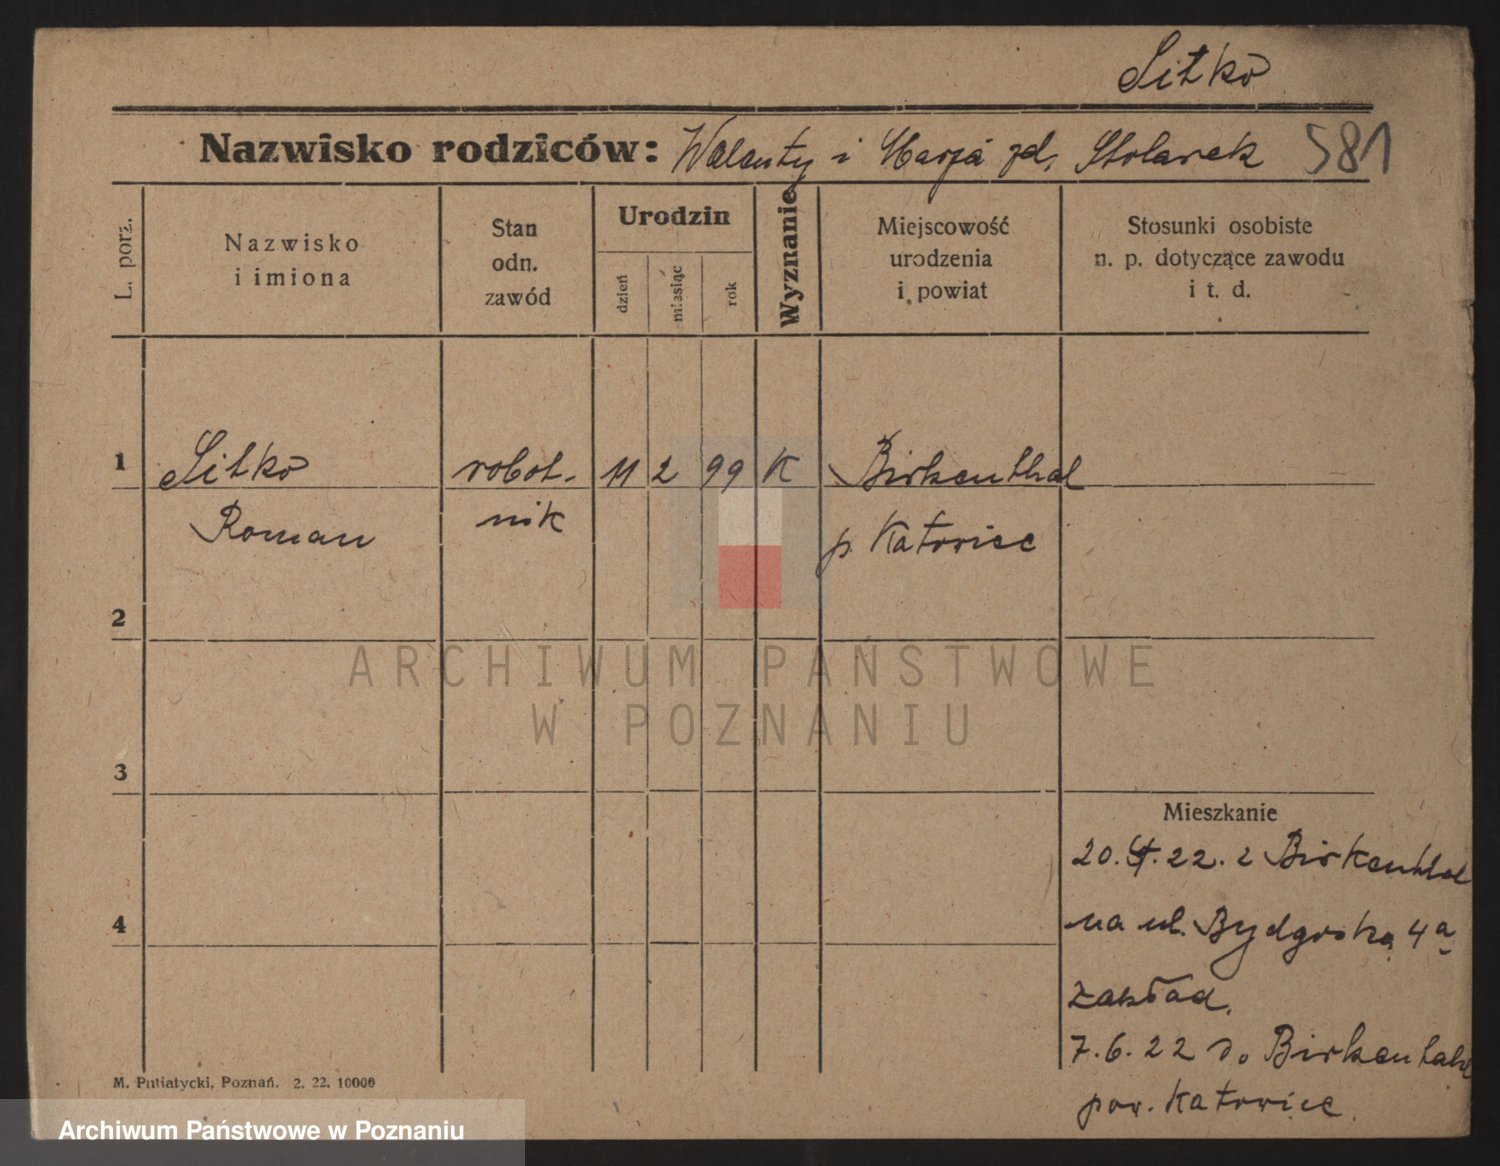 Sitko
Nazwisko rodziców: Walenty i Marja zd. Stolarek 581
L. porz.
Nazwisko
i imiona
Stan
odn.
zawód
Urodzin
dzień
miesiąc
rok
Wyznanie
Miejscowość
urodzenia
i powiat
Stosunki osobiste
n. p. dotyczące zawodu
i t. d.
1 Sitko robot- 11 2 99 K Birkenthal
Roman nik p. Katowice
2
ARCHIWUM PAŃSTWOWE
W POZNANIU
3
Mieszkanie
20. 22. z Birkenthal
4
na ul. Bydgoska 4a
Zakład.
7.6.22 do Birkenthal
pow. Katowice
M. Putiatycki, Poznań. 2. 22. 10000
Archiwum Państwowe w Poznaniu